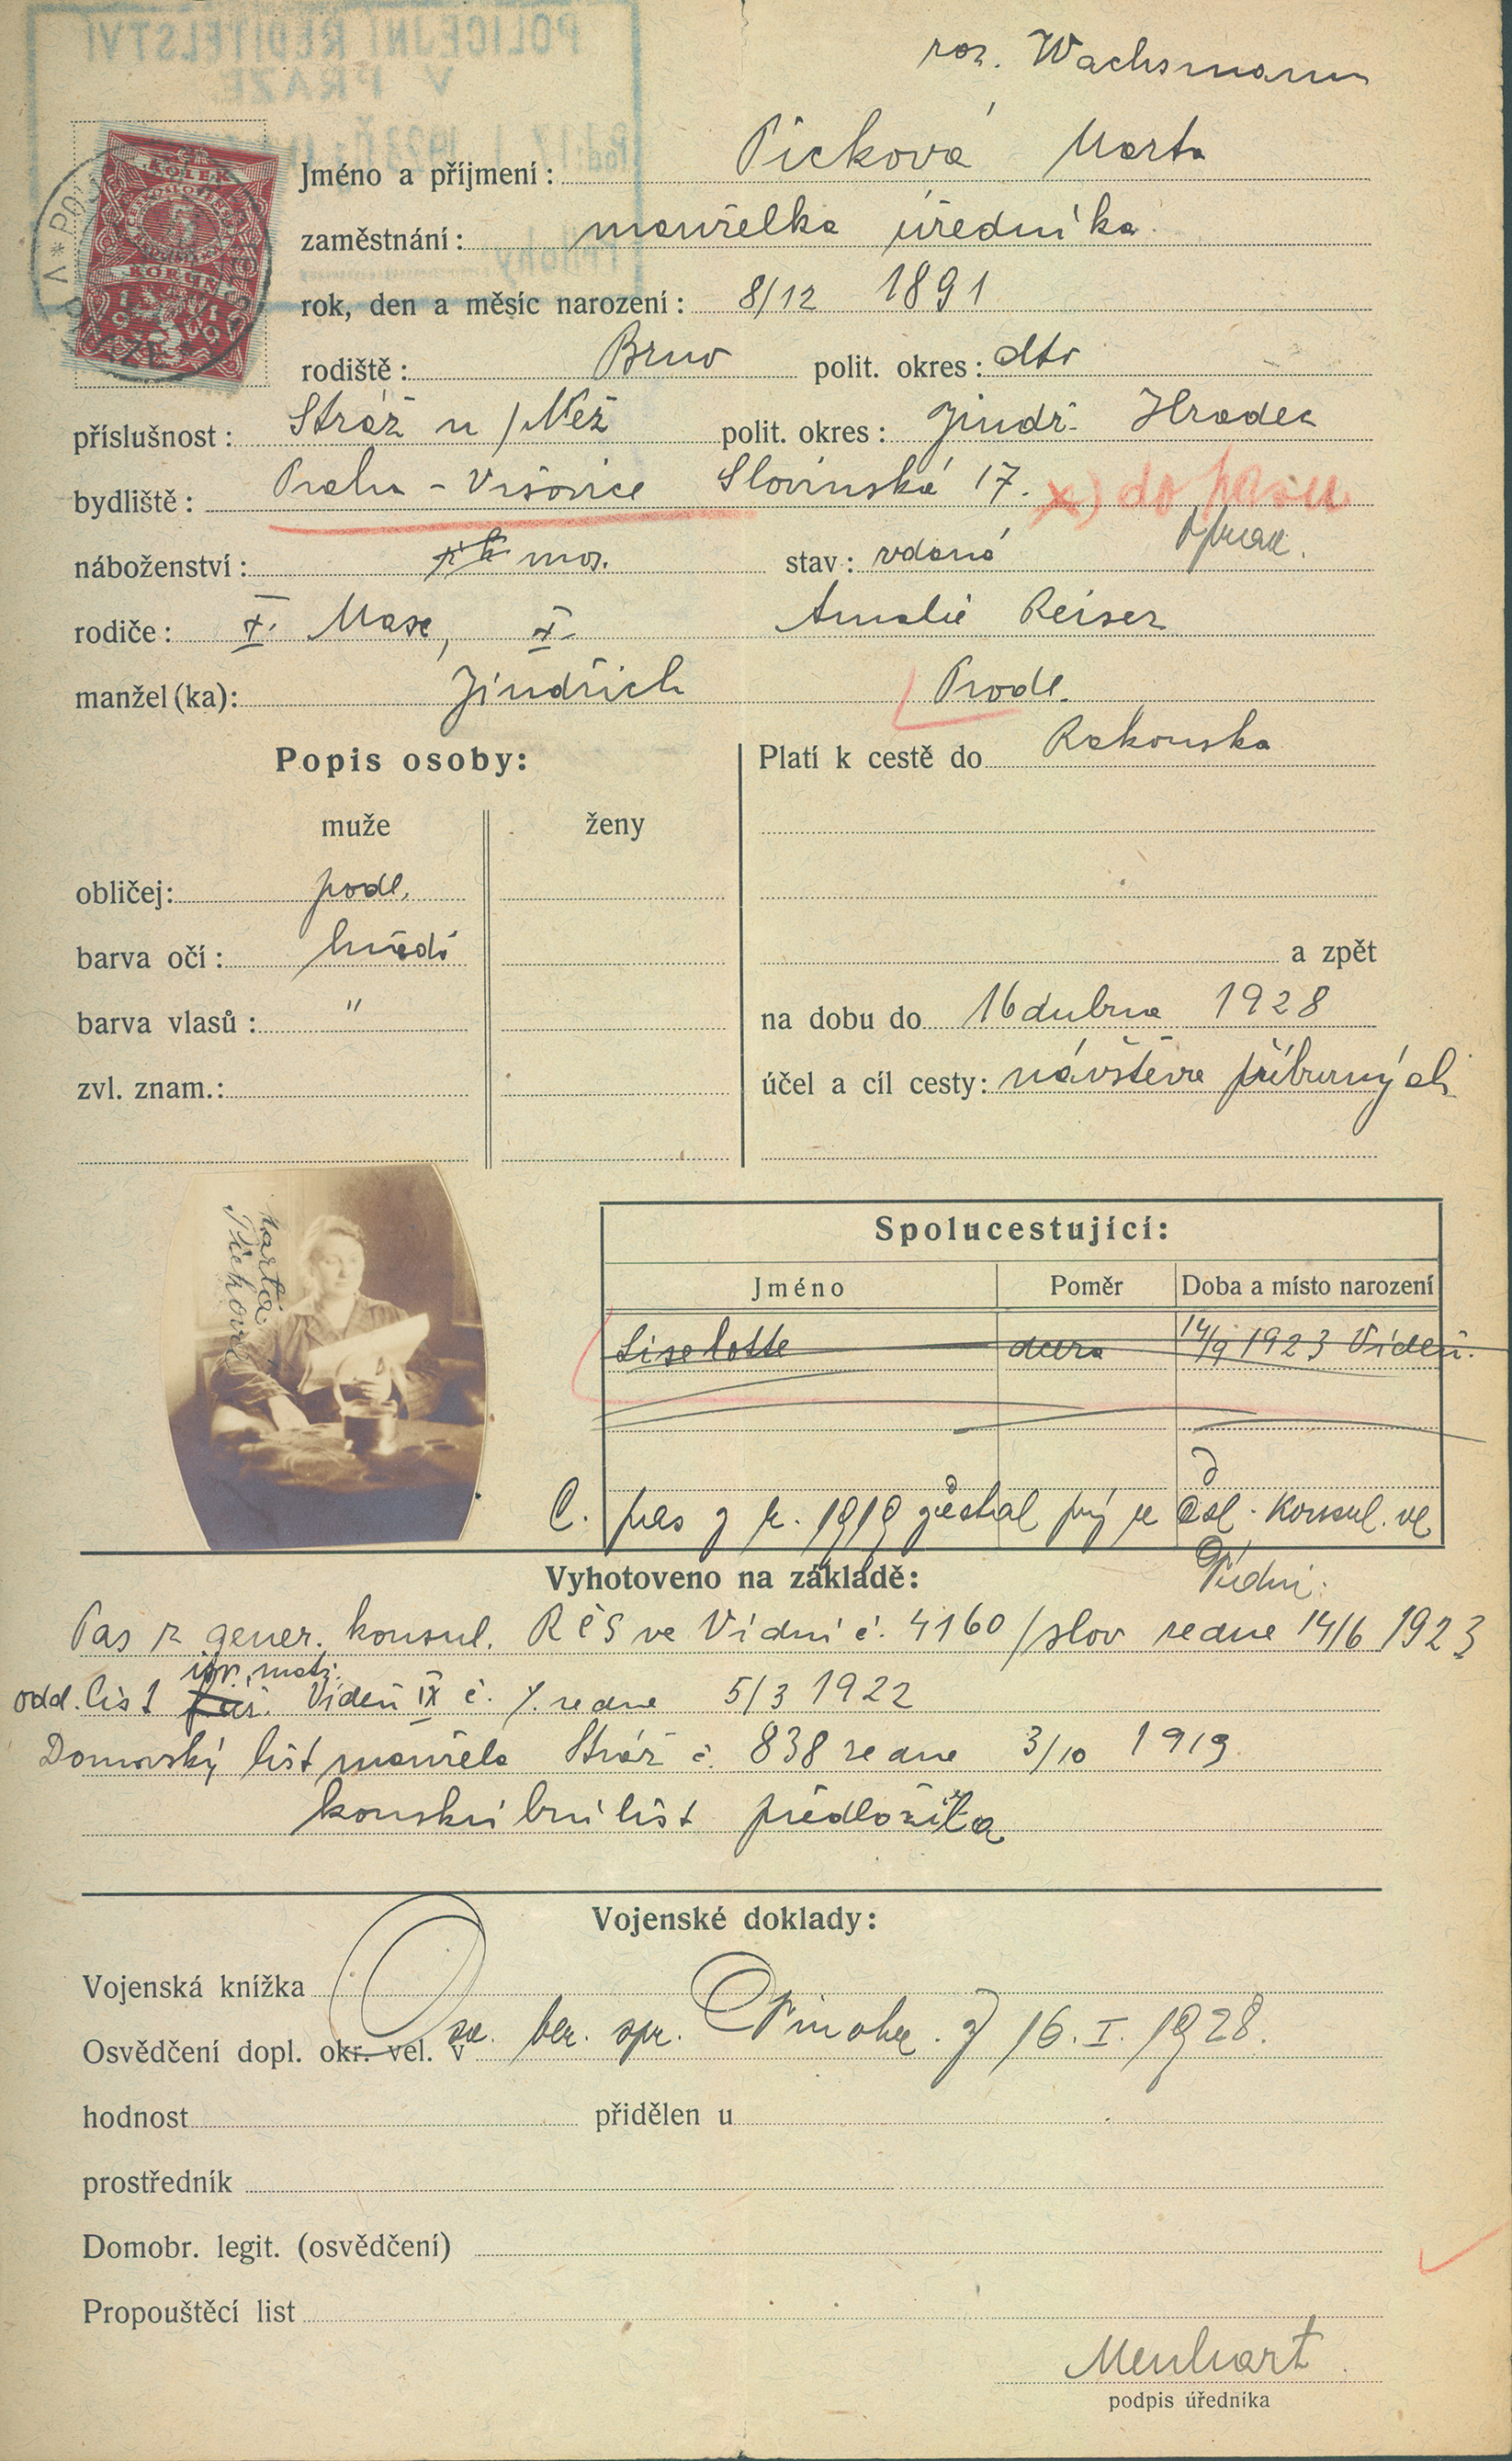 POLICEJNÍ ŘEDITELSTVÍ
V PRAZE
roz. Wachsmann
KOLEK
KORUN
Jméno a příjmení: Picková Marta
zaměstnání: manželka úředníka
rok, den a měsíc narození: 8/12 1891
rodiště: Brno polit. okres: dto
příslušnost: Stráž n/Než polit. okres: Jindř. Hradec
bydliště: Praha - Vršovice Slovinská 17. x) do pasu
náboženství: mos. stav: vdaná
rodiče: Max, Amalie Reiser
manžel(ka): Jindřich Prodl.
Popis osoby:
Platí k cestě do Rakouska
muže ženy
obličej: podl.
barva očí: hnědé
a zpět
barva vlasů: "
na dobu do 16 dubna 1928
zvl. znam.:
účel a cíl cesty: návštěva příbuzných
Marta
Picková
Spolucestující:
Jméno Poměr Doba a místo narození
Liselotte dcera 14/9 1923 Vídeň.
C. pas z r. 1919 prý je čsl. konsul. ve
Vídni.
Vyhotoveno na základě:
Pas z gener. konsul. RČS ve Vídni č. 4160/slov ze dne 14/6 1923
isr. mat.
odd. list Vídeň IX č. 7. ze dne 5/3 1922
Domovský list manžela Stráž č. 838 ze dne 3/10 1919
konskribní list předložila
Vojenské doklady:
Vojenská knížka
Osvědčení dopl. okr. vel. v ber. spr. 16. I. 1928.
hodnost přidělen u
prostředník
Domobr. legit. (osvědčení)
Propouštěcí list
Menhart
podpis úředníka